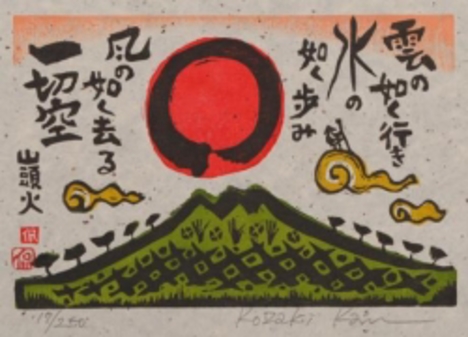 雲の
如く行き
水の
如く歩み
風の
如く去る
一切空
山頭火
侃
侃
Kozaki Kan